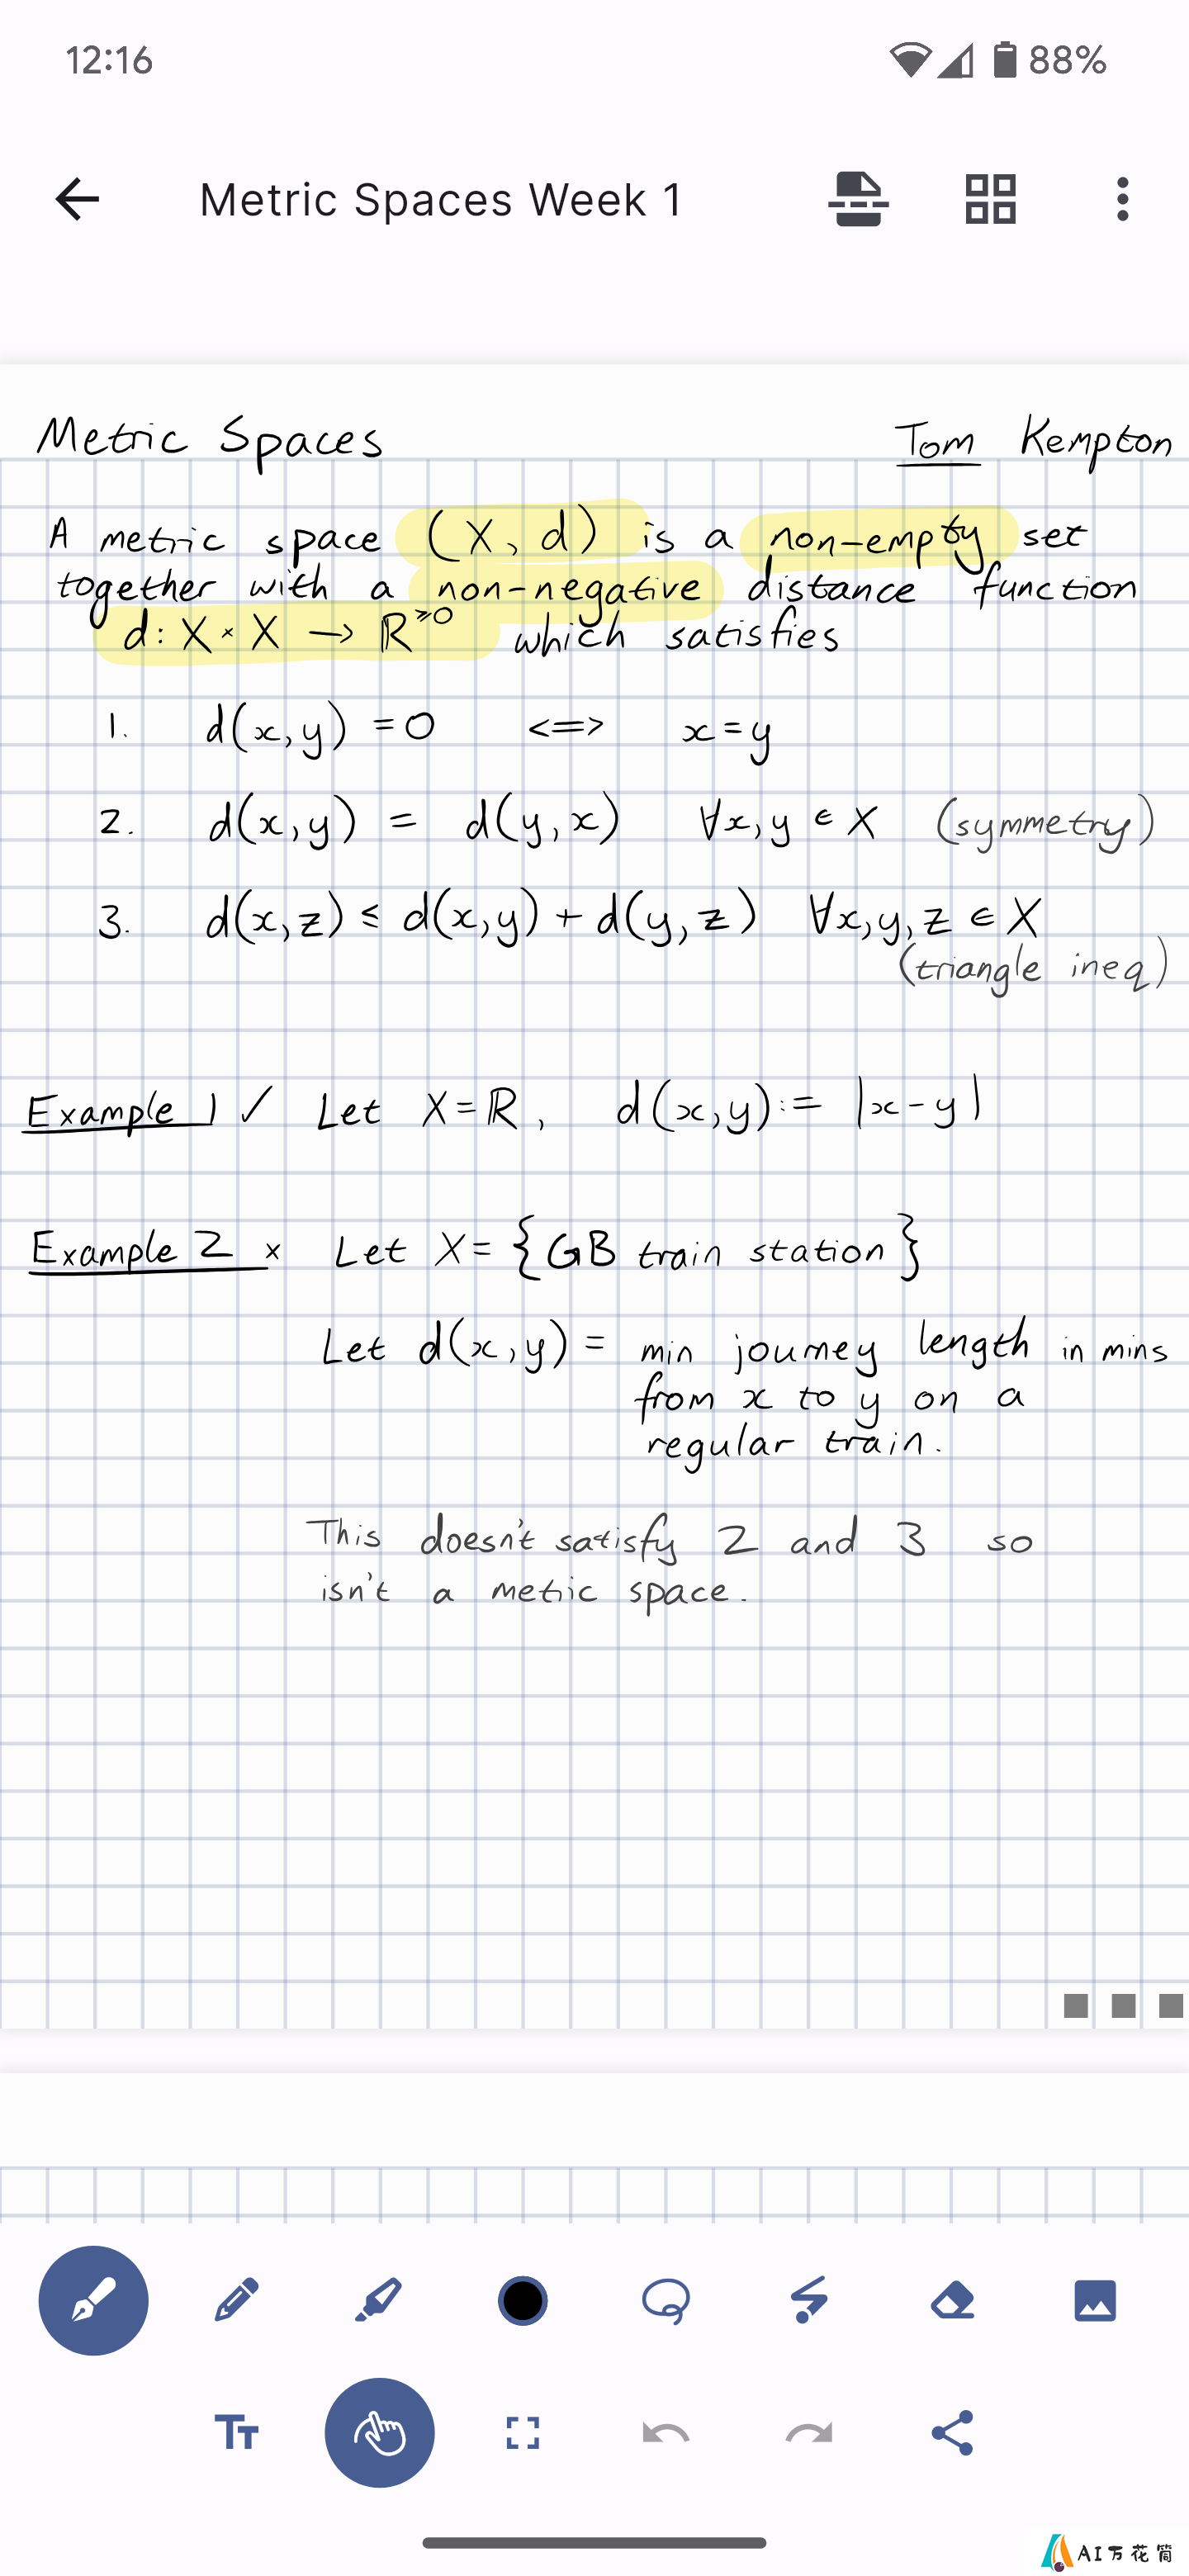 12:16
88%
Metric Spaces Week 1
Metric Spaces
Tom Kempton
A metric space (X, d) is a non-empty set
together with a non-negative distance function
d: X × X → ℝ^≥0 which satisfies
1. d(x,y) = 0 <=> x=y
2. d(x,y) = d(y,x) ∀x,y ∈ X (symmetry)
3. d(x,z) ≤ d(x,y) + d(y,z) ∀x,y,z ∈ X
(triangle ineq)
Example 1 ✓ Let X=ℝ, d(x,y):= |x-y|
Example 2 × Let X= {GB train station}
Let d(x,y) = min journey length in mins
from x to y on a
regular train.
This doesn't satisfy 2 and 3 so
isn't a metric space.
TT
AI万花筒